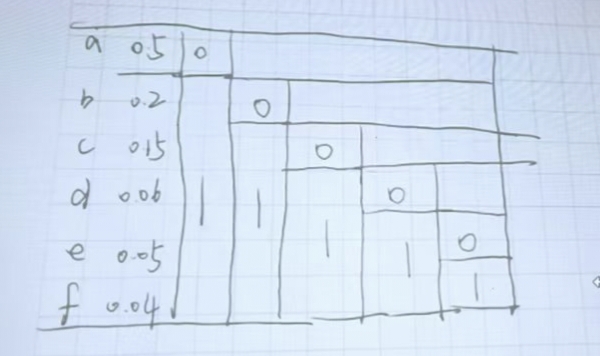 a 0.5 0
b 0.2 0
c 0.15 0
d 0.06 1 1 0
e 0.05 1 1 0
f 0.04 1